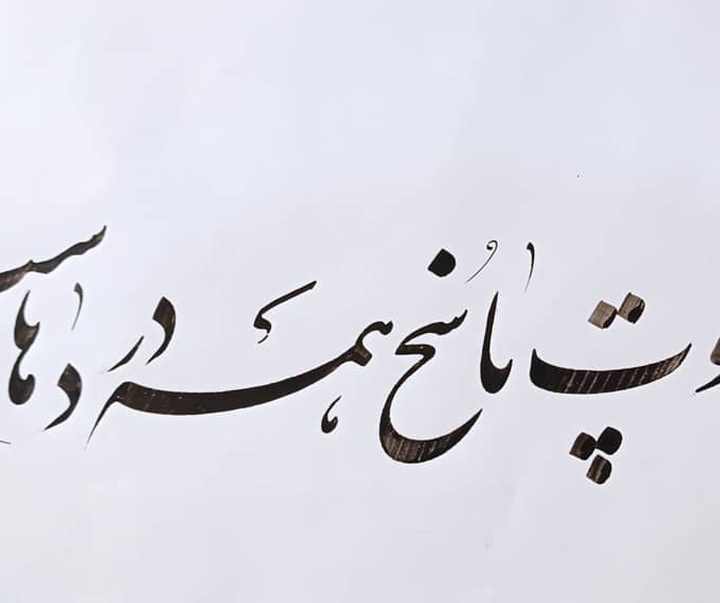 وت پاسخ همهٔ دردهاس